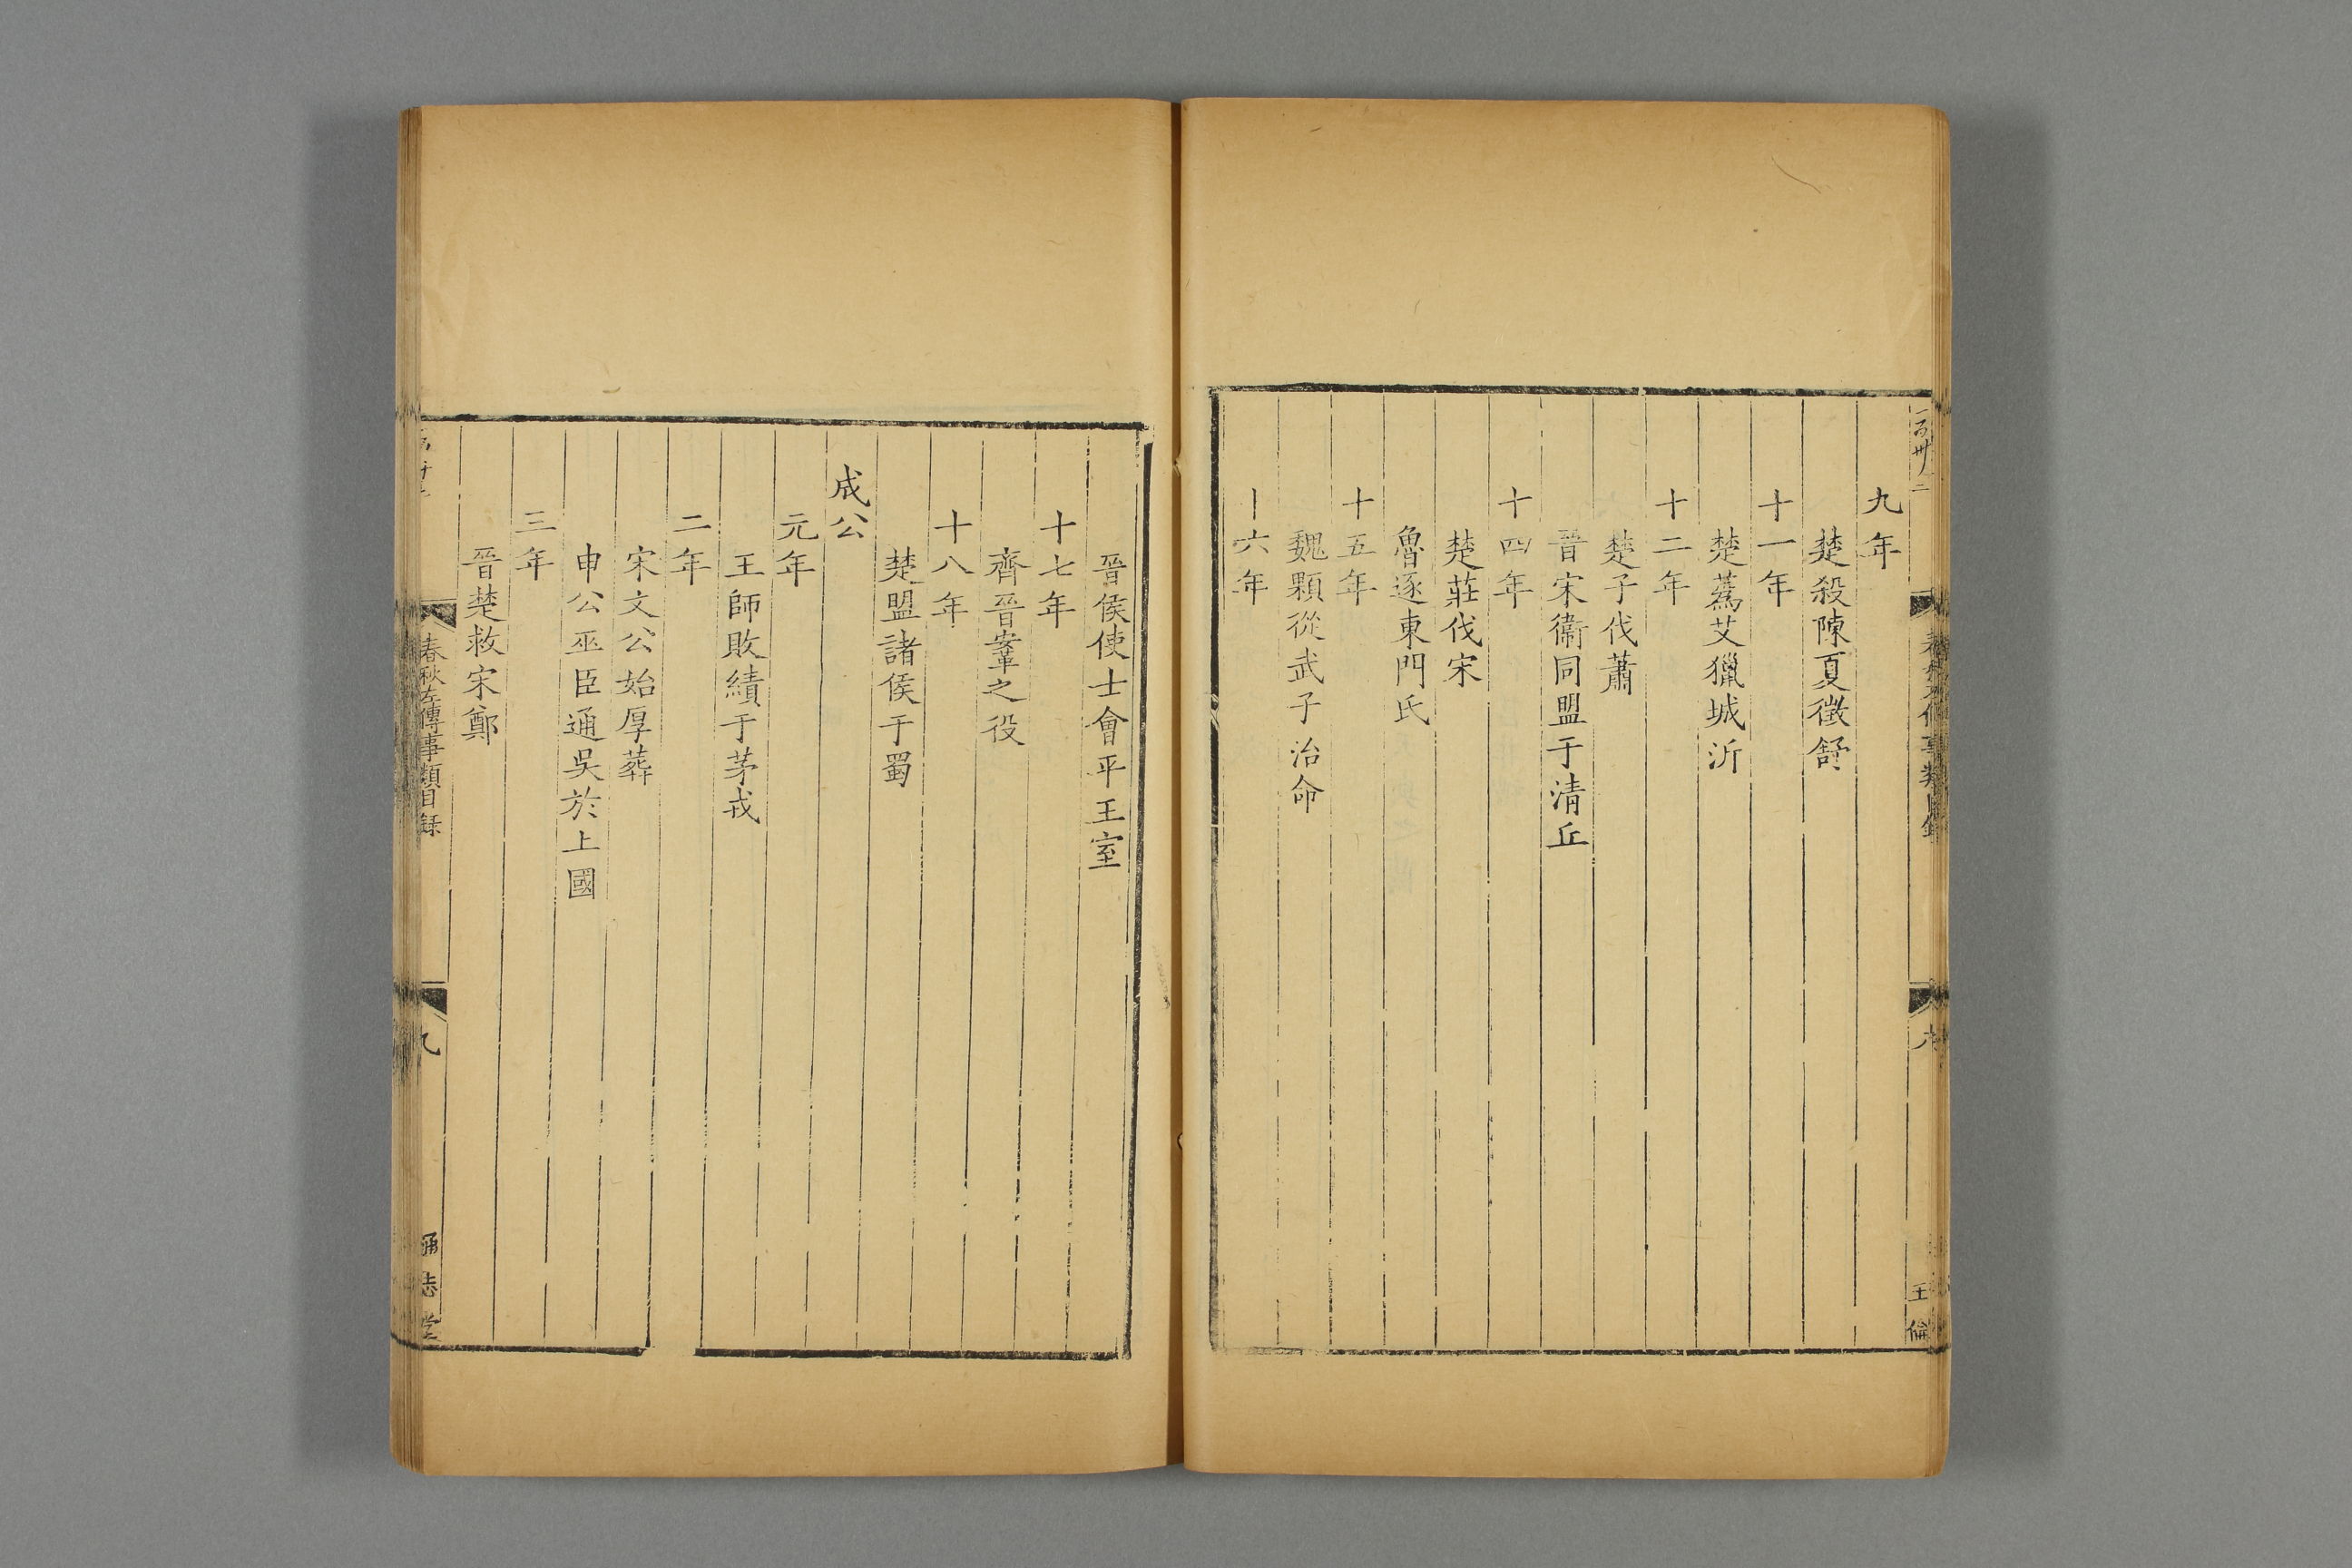 九年
楚殺陳夏徵舒
十一年
楚蒍艾獵城沂
十二年
楚子伐蕭
晉宋衞同盟于清丘
十四年
楚莊伐宋
魯逐東門氏
十五年
魏顆從武子治命
十六年
晉侯使士會平王室
十七年
齊晉鞌之役
十八年
楚盟諸侯于蜀
成公
元年
王師敗績于茅戎
二年
宋文公始厚葬
申公巫臣通吳於上國
三年
晉楚救宋鄭
春秋左傳事類目録
九
通志堂